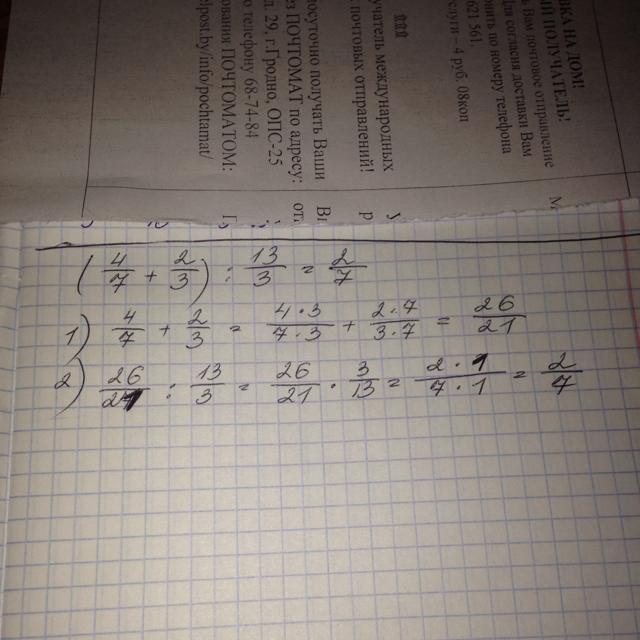 ВКА НА ДОМ!
ПОЛУЧАТЕЛЬ!
Вам почтовое отправление
согласия доставки Вам
по номеру телефона
621 561.
– 4 руб. 08коп
международных
почтовых отправлений!
получать Ваши
ПОЧТОМАТ по адресу:
29, г.Гродно, ОПС-25
телефону 68-74-84
ПОЧТОМАТОМ:
lpost.by/info/pochtamat/
(4/7 + 2/3) : 13/3 = 2/7
1) 4/7 + 2/3 = 4·3/7·3 + 2·7/3·7 = 26/21
2) 26/21 : 13/3 = 26/21 · 3/13 = 2·1/7·1 = 2/7